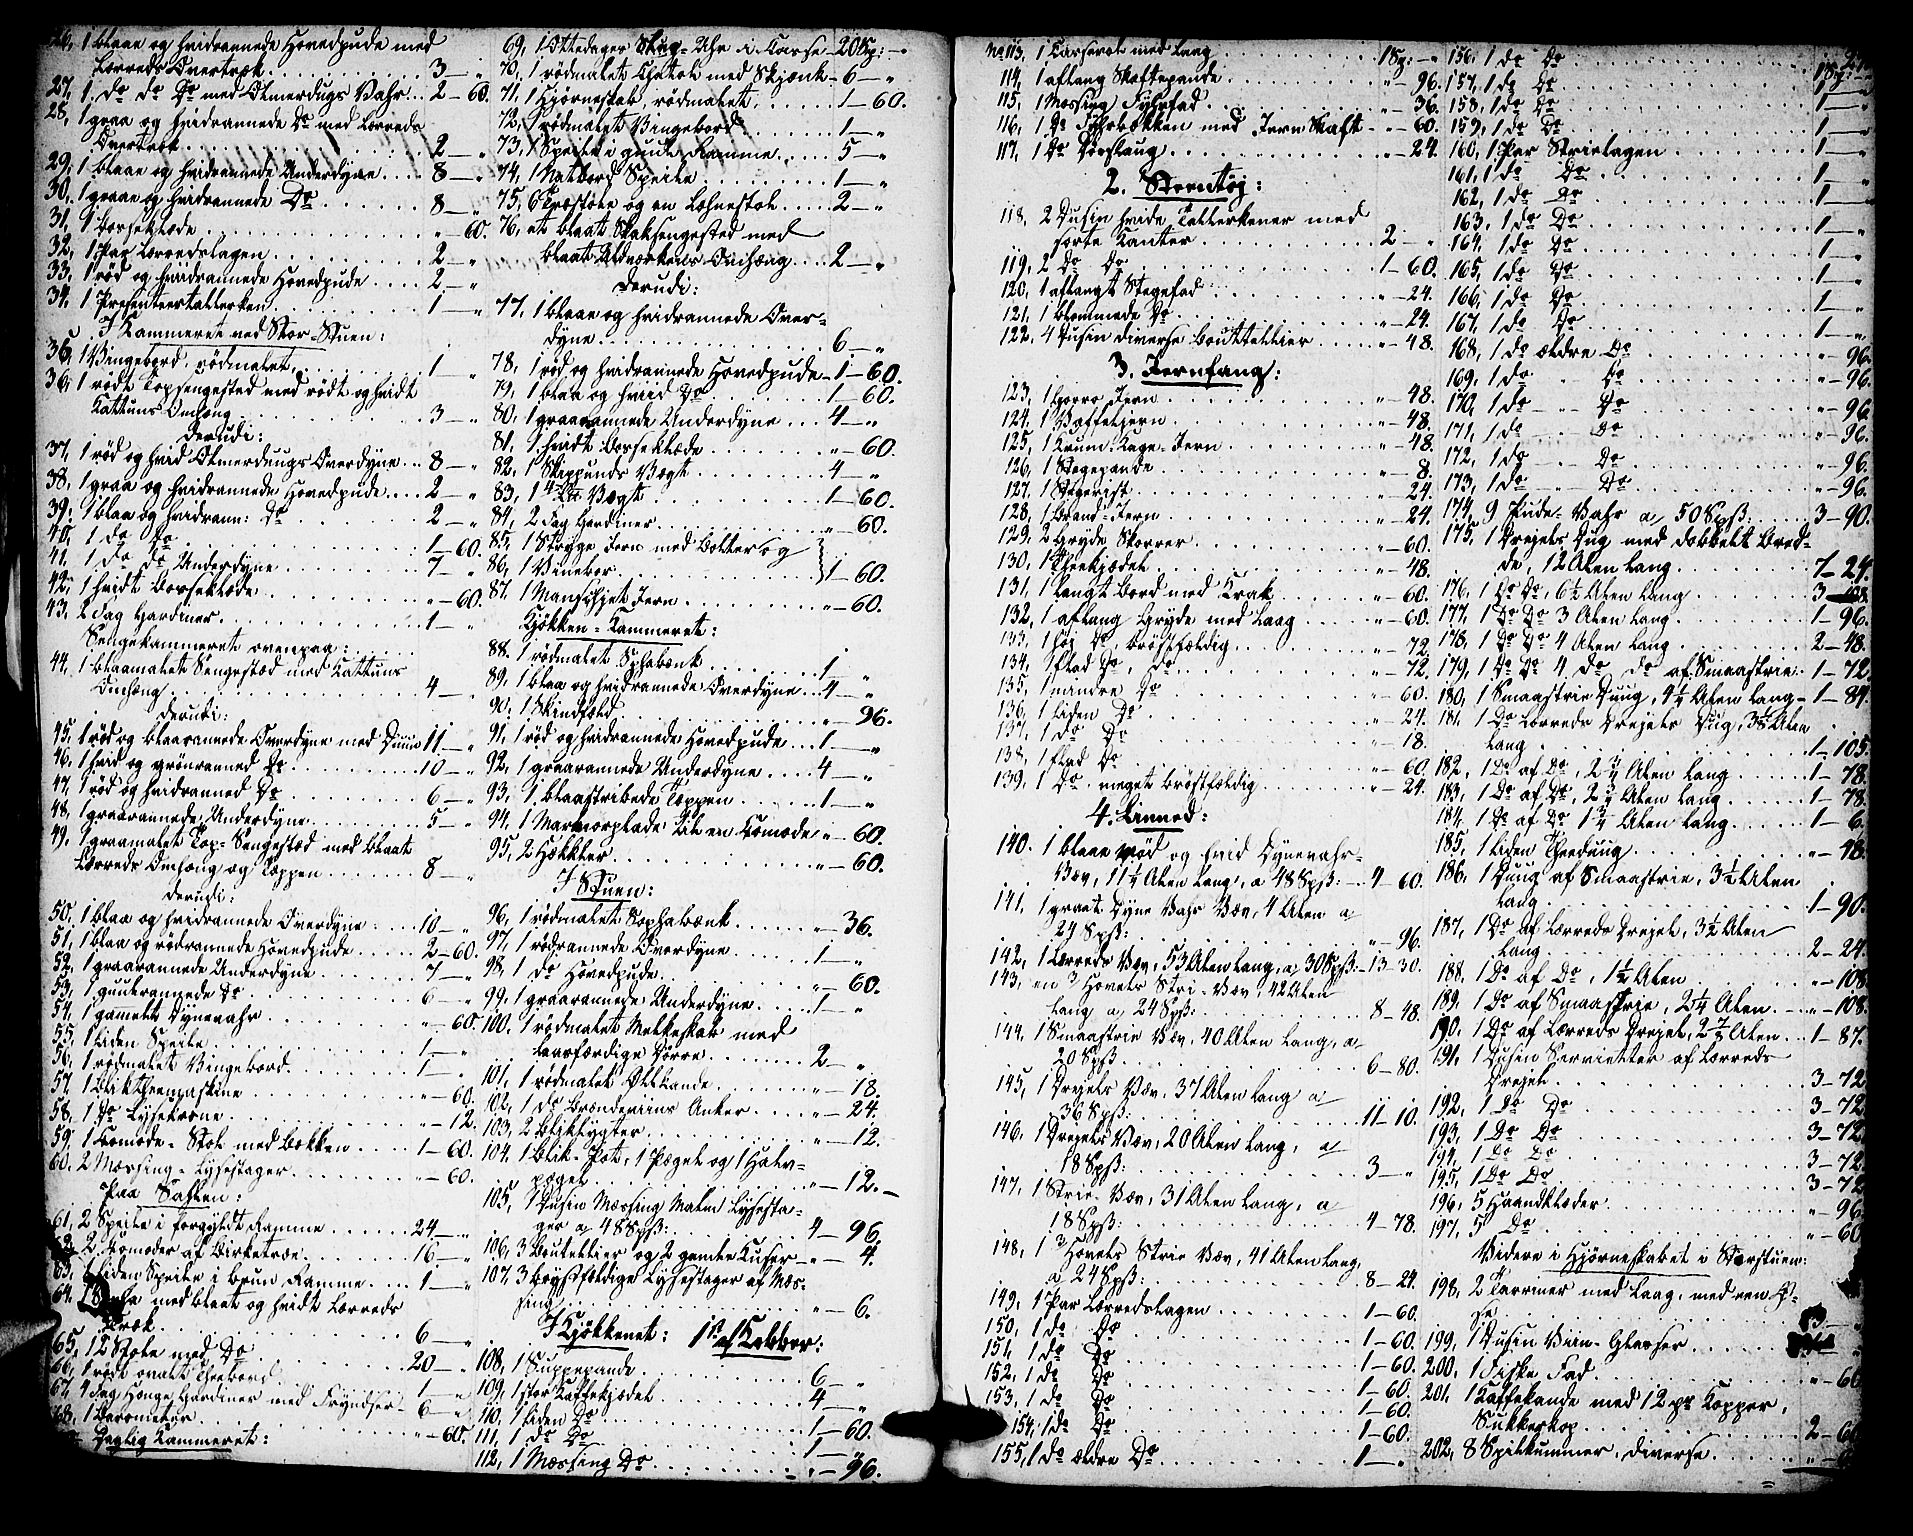 26, 1 blaae og hvidrannede Hovedpude med
Lærreds Overtræk 3 — "
27, 1 do do Do med Olmerdugs Vahr 2 — 60.
28, 1 graa og hvidrannede Do med Lærreds
Overtræk 2 — "
29, 1 blaae og hvidrannede Underdyne 8 — "
30, 1 graae og hvidrannede Do 8 — "
31, 1 " — 60.
32, 1 Par Lærredslagen 2 — "
33, 1 rød og hvidrannede Hovedpude 2 — "
34, 1 Præsenteertallerken 1 — "
I Kammeret ved Stor-Stuen:
35, 1 Vingebord, rødmalet 1 — "
36, 1 rødt Topsengested med rødt og hvidt
Kattuns Omhæng 3 — "
Derudi:
37, 1 rød og hvid Olmerdugs Overdyne 8 — "
38, 1 graa og hvidrannede Hovedpude 2 — "
39, 1 blaa og hvidrann: Do 2 — "
40, 1 do Do 1 — 60.
41, 1 do do Underdyne 7 — "
42, 1 hvidt " — 60.
43, 2 Fag Gardiner 1 — "
Sengekammeret ovenpaa:
44, 1 blaamalet Sengested med Kattuns
Omhæng 4 — "
Derudi:
45, 1 rød og blaarannede Overdyne med Duun 11 — "
46, 1 hvid og grønranned Do 10 — "
47, 1 rød og hvidranned Do 6 — "
48, 1 graarannede Underdyne 5 — "
49, 1 graamalet Top-Sengested med blaat
Lærreds Omhæng og Teppen 8 — "
Derudi:
50, 1 blaa og hvidrannede Overdyne 10 — "
51, 1 blaa og rødrannede Hovedpude 2 — 60.
52, 1 graarannede Underdyne 7 — "
53, 1 guulrannede Do 6 — "
54, 1 gammelt Dynevahr " — 60.
55, 1 liden Speile 1 — "
56, 1 rødmalet Vingebord 1 — "
57, 1 Blik Theemaskine " — 60.
58, 1 Do Lysekrone " — 12.
59, 1 Comode-Stol med Bækken 1 — 60.
60, 2 Mæssing-Lysestager " — 60.
Paa Sahlen:
61, 2 Speile i forgyldt Ramme 24 — "
62, 2 Comoder af Birketræe 16 — "
63, 1 liden Speile i brun Ramme 1 — "
64, 1 med blaat og hvidt Lærreds
Træk 6 — "
65, 12 Stole med Do 20 — "
66, 1 rødt ovalt Theebord 1 — "
67, 4 Fag Hænge Gardiner med Fryndser 6 — "
68, 1 Barometer " — 60.
Daglig Kammeret:
69, 1 Ottedages Slag-Uhr i Casse 20 Sp: — "
70, 1 rødmalet Chatol med Skjænk 6 — "
71, 1 Hjørneskab, rødmalet 1 — 60.
72, 1 rødmalet Vingebord 1 — "
73, 1 Speile i guul Ramme 5 — "
74, 1 Natbord Speile 1 — "
75, 6 Træstole og en Lehnestol 2 — "
76, et blaat Slaksengested med
blaat Omhæng 2 — "
Derudi:
77, 1 blaae og hvidrannede Over-
dyne 6 — "
78, 1 rød og hvidrannede Hovedpude 1 — 60.
79, 1 blaa og hviid Do 1 — 60.
80, 1 graarannede Underdyne 4 — "
81, 1 hvidt " — 60.
82, 1 Skippunds Vægt 4 — "
83, 1 Vægt 1 — 60.
84, 2 Fag Gardiner " — 60.
85, 1 Stryge Jern med Bolter og
86, 1 Vinebor 1 — 60.
87, 1 Jern " — 60.
Kjøkken-Kammeret:
88, 1 rødmalet Sophabænk 1 — "
89, 1 blaa og hvidrannede Overdyne 4 — "
90, 1 Skindfæld " — 96.
91, 1 rød og hvidrannede Hovedpude 1 — "
92, 1 graarannede Underdyne 4 — "
93, 1 blaastribede Teppen 1 — "
94, 1 Marmorplade til en Comode " — 60.
95, 2 Hækkler " — 60.
I Stuen:
96, 1 rødmalet Sophabænk " — 36.
97, 1 rødrannede Overdyne 1 — "
98, 1 do Hovedpude " — 60.
99, 1 graarannede Underdyne 1 — "
100, 1 rødmalet Melkeskab med
Dørre 2 — "
101, 1 rødmalet Ølkande " — 18.
102, 1 do Brændeviins Anker " — 24.
103, 2 Bliklygter " — 12.
104, 1 Blik-Pot, 1 Pægel og 1 Halv-
pægel " — 12.
105, 1 Dusin Mæssing Malm Lysesta-
ger a 48 Spß: 4 — 96.
106, 3 Buteltier og 2 gamle Kufer " — 4.
107, 3 brystfældige Lysestager af Mæs-
sing " — 6.
I Kjøkkenet: 1st af Kobber:
108, 1 Suppepande 6 — "
109, 1 stor Kaffekjedel 4 — "
110, 1 liden Do 1 — 60.
111, 1 do Do 1 — "
112, 1 Mæssing Do " — 96.
No 113, 1 Casserol med Laag 1 Sp: — "
114, 1 aflang Skaftepande " — 96.
115, 1 Mæssing Fyrfad " — 36.
116, 1 Do Fyrbækken med Jern Skaft " — 60.
117, 1 Do Dørslaug " — 24.
2. Steentøj:
118, 2 Dusin hvide Tallerkener med
sorte Kanter 2 — "
119, 2 Do Do 1 — 60.
120, 1 aflangt Stegefad " — 24.
121, 1 blommede Do " — 24.
122, 4 Dusin diverse Bouttellier " — 48.
3. Jernfang:
123, 1 Gorro Jern " — 48.
124, 1 Vaffeljern " — 48.
125, 1 Krum Kage-Jern " — 48.
126, 1 Stegepande " — 8.
127, 1 Stegerist " — 24.
128, 1 Brand-Jern " — 24.
129, 2 Gryde Skorrer " — 60.
130, 1 Theekjædel " — 48.
131, 1 langt Bord med Krak " — 60.
132, 1 aflang Gryde med Laag " — 60.
133, 1 høj Do brøstfældig " — 72.
134, 1 flad Do, do " — 72.
135, 1 mindre Do " — 60.
136, 1 liden Do " — 24.
137, 1 do Do " — 18.
138, 1 flad Do " — 60.
139, 1 Do meget brøstfældig " — 24.
4. Linned:
140, 1 blaae rød og hvid Dynevahrs-
Væv, 11 1/4 Alen lang, a 48 Spß: 4 — 60.
141, 1 graat Dyne Vahr Væv, 4 Alen a
24 Spß: " — 96.
142, 1 Lærreds Væv, 53 Alen lang, a 30 Spß: 13 — 30.
143, en 3 Hovels Strie-Væv, 42 Alen
lang a 24 Spß: 8 — 48.
144, 1 Smaastrie Væv, 40 Alen lang, a
20 Spß 6 — 80.
145, 1 Drejels Væv, 37 Alen lang a
36 Spß: 11 — 10.
146, 1 Drejels Væv, 20 Alen lang, a
18 Spß: 3 — "
147, 1 Strie-Væv, 31 Alen lang, a
18 Spß: 4 — 78.
148, 1 3 Hovels Strie Væv, 41 Alen lang,
a 24 Spß: 8 — 24.
149, 1 Par Lærredslagen 1 — 60.
150, 1 do Do 1 — 60.
151, 1 do Do 1 — 60.
152, 1 do Do 1 — 60.
153, 1 do Do 1 — 60.
154, 1 do Do 1 — 60.
155, 1 do ældre Do 1 — "
156, 1 do Do 1 Sp: — "
157, 1 do Do 1 — "
158, 1 do Do 1 — "
159, 1 do Do 1 — "
160, 1 Par Strielagen 1 — "
161, 1 do Do 1 — "
162, 1 do Do 1 — "
163, 1 do Do 1 — "
164, 1 do Do 1 — "
165, 1 do Do 1 — "
166, 1 do Do 1 — "
167, 1 do Do 1 — "
168, 1 do ældre Do " — 96.
169, 1 do " Do " — 96.
170, 1 do " Do " — 96.
171, 1 do " Do " — 96.
172, 1 do " Do " — 96.
173, 1 do " Do " — 96.
174, 9 Pude-Vahr a 50 Spß: 3 — 90.
175, 1 Drejels Dug med dobbelt Bred-
de, 12 Alen lang 7 — 24.
176, 1 Do Do, 6 1/4 Alen lang 3 —
177, 1 Do Do 3 Alen lang 1 — 96.
178, 1 Do Do 4 Alen lang 2 — 48.
179, 1 Do Do 4 do do af Smaastrie 1 — 72.
180, 1 Smaastrie Duug, 4 1/4 Alen lang 1 — 84.
181, 1 Do Lærreds Drejels Dug, 3 Alen
lang 1 — 105.
182, 1 Do af Do, 2 3/4 Alen lang 1 — 78.
183, 1 Do af Do, 2 3/4 Alen lang 1 — 78.
184, 1 Do af Do 1 3/4 Alen lang 1 — 6.
185, 1 liden Theeduug " — 48.
186, 1 Duug af Smaastrie, 3 1/4 Alen
lang 1 — 90.
187, 1 Do af Lærreds Drejel, 3 1/2 Alen
lang 2 — 24.
188, 1 Do af Do, 1 1/2 Alen " — 108.
189, 1 Do af Smaastrie, 2 1/4 Alen " — 108.
190, 1 Do af Lærreds Drejel, 2 7/8 Alen 1 — 87.
191, 1 Dusin Servietter af Lærreds
Drejel 3 — 72.
192, 1 Do Do 3 — 72.
193, 1 Do Do 3 — 72.
194, 1 Do Do 3 — 72.
195, 1 Do Do 3 — 72.
196, 5 Haandklæder " — 96.
197, 5 Do " — 60.
Videre i Hjørneskabet i Storstuen:
198, 2 Tarriner med Laag, med een
199, 1 Dusin Viin-Glasser
200, 1 Fiske Fad " — 60
201, 1 Kaffekande med 12 pr Kopper,
Sukkerkop 2 — 60
202, 8 Spilkummer, diverse